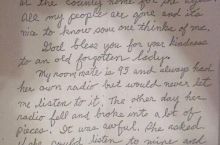 at the county home for the aged.
All my people are gone and it's
nice to know some one thinks of me.
God bless you for your kindness
to an old forgotten lady.
My room mate is 95 and always had
her own radio but would never let
me listen to it. The other day her
radio fell and broke into a lot of
pieces. It was awful. She asked
could listen to mine and